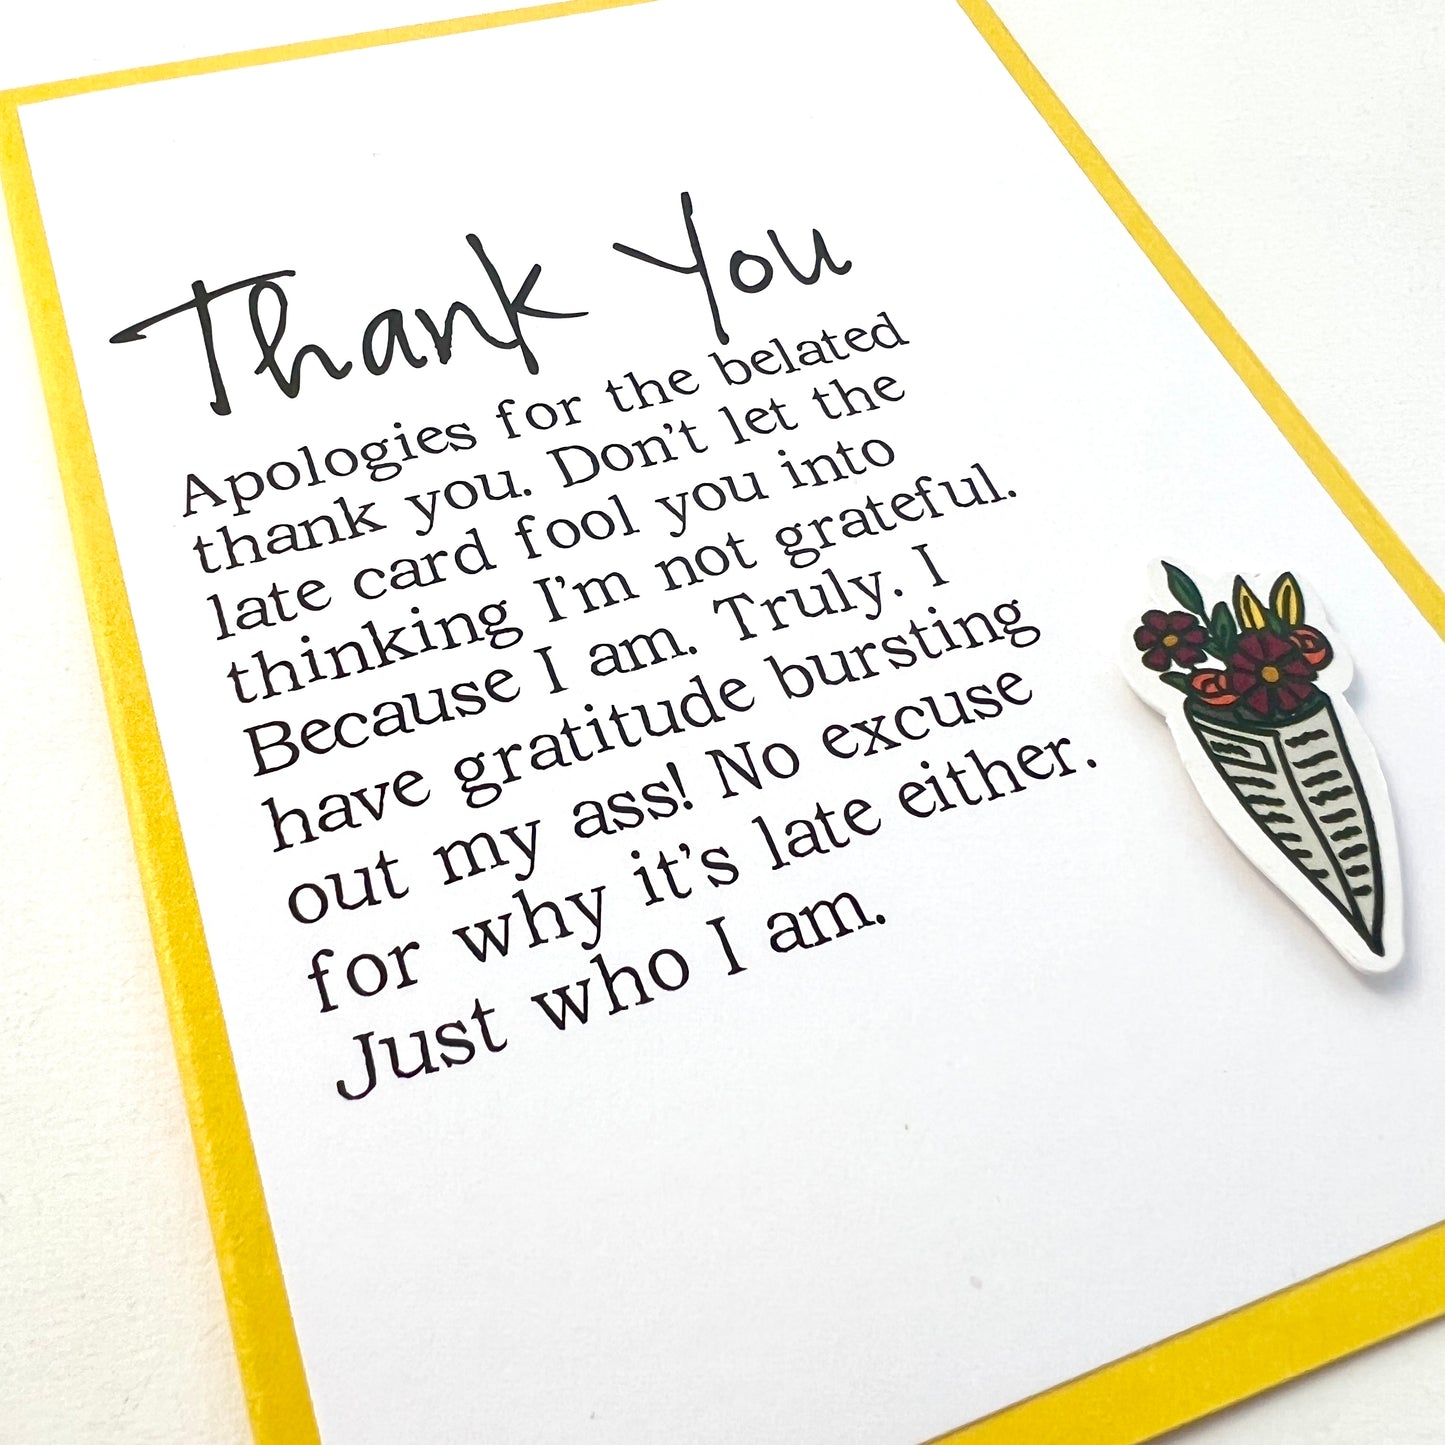 Thank You
Apologies for the belated
thank you. Don't let the
late card fool you into
thinking I'm not grateful.
Because I am. Truly. I
have gratitude bursting
out my ass! No excuse
for why it's late either.
Just who I am.